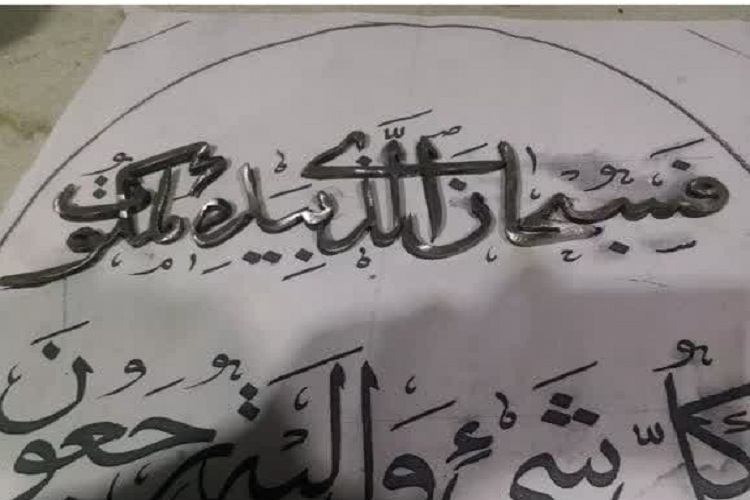 فَسُبْحَانَ الَّذِي بِيَدِهِ مَلَكُوتُ
كُلِّ شَيْءٍ وَإِلَيْهِ تُرْجَعُونَ